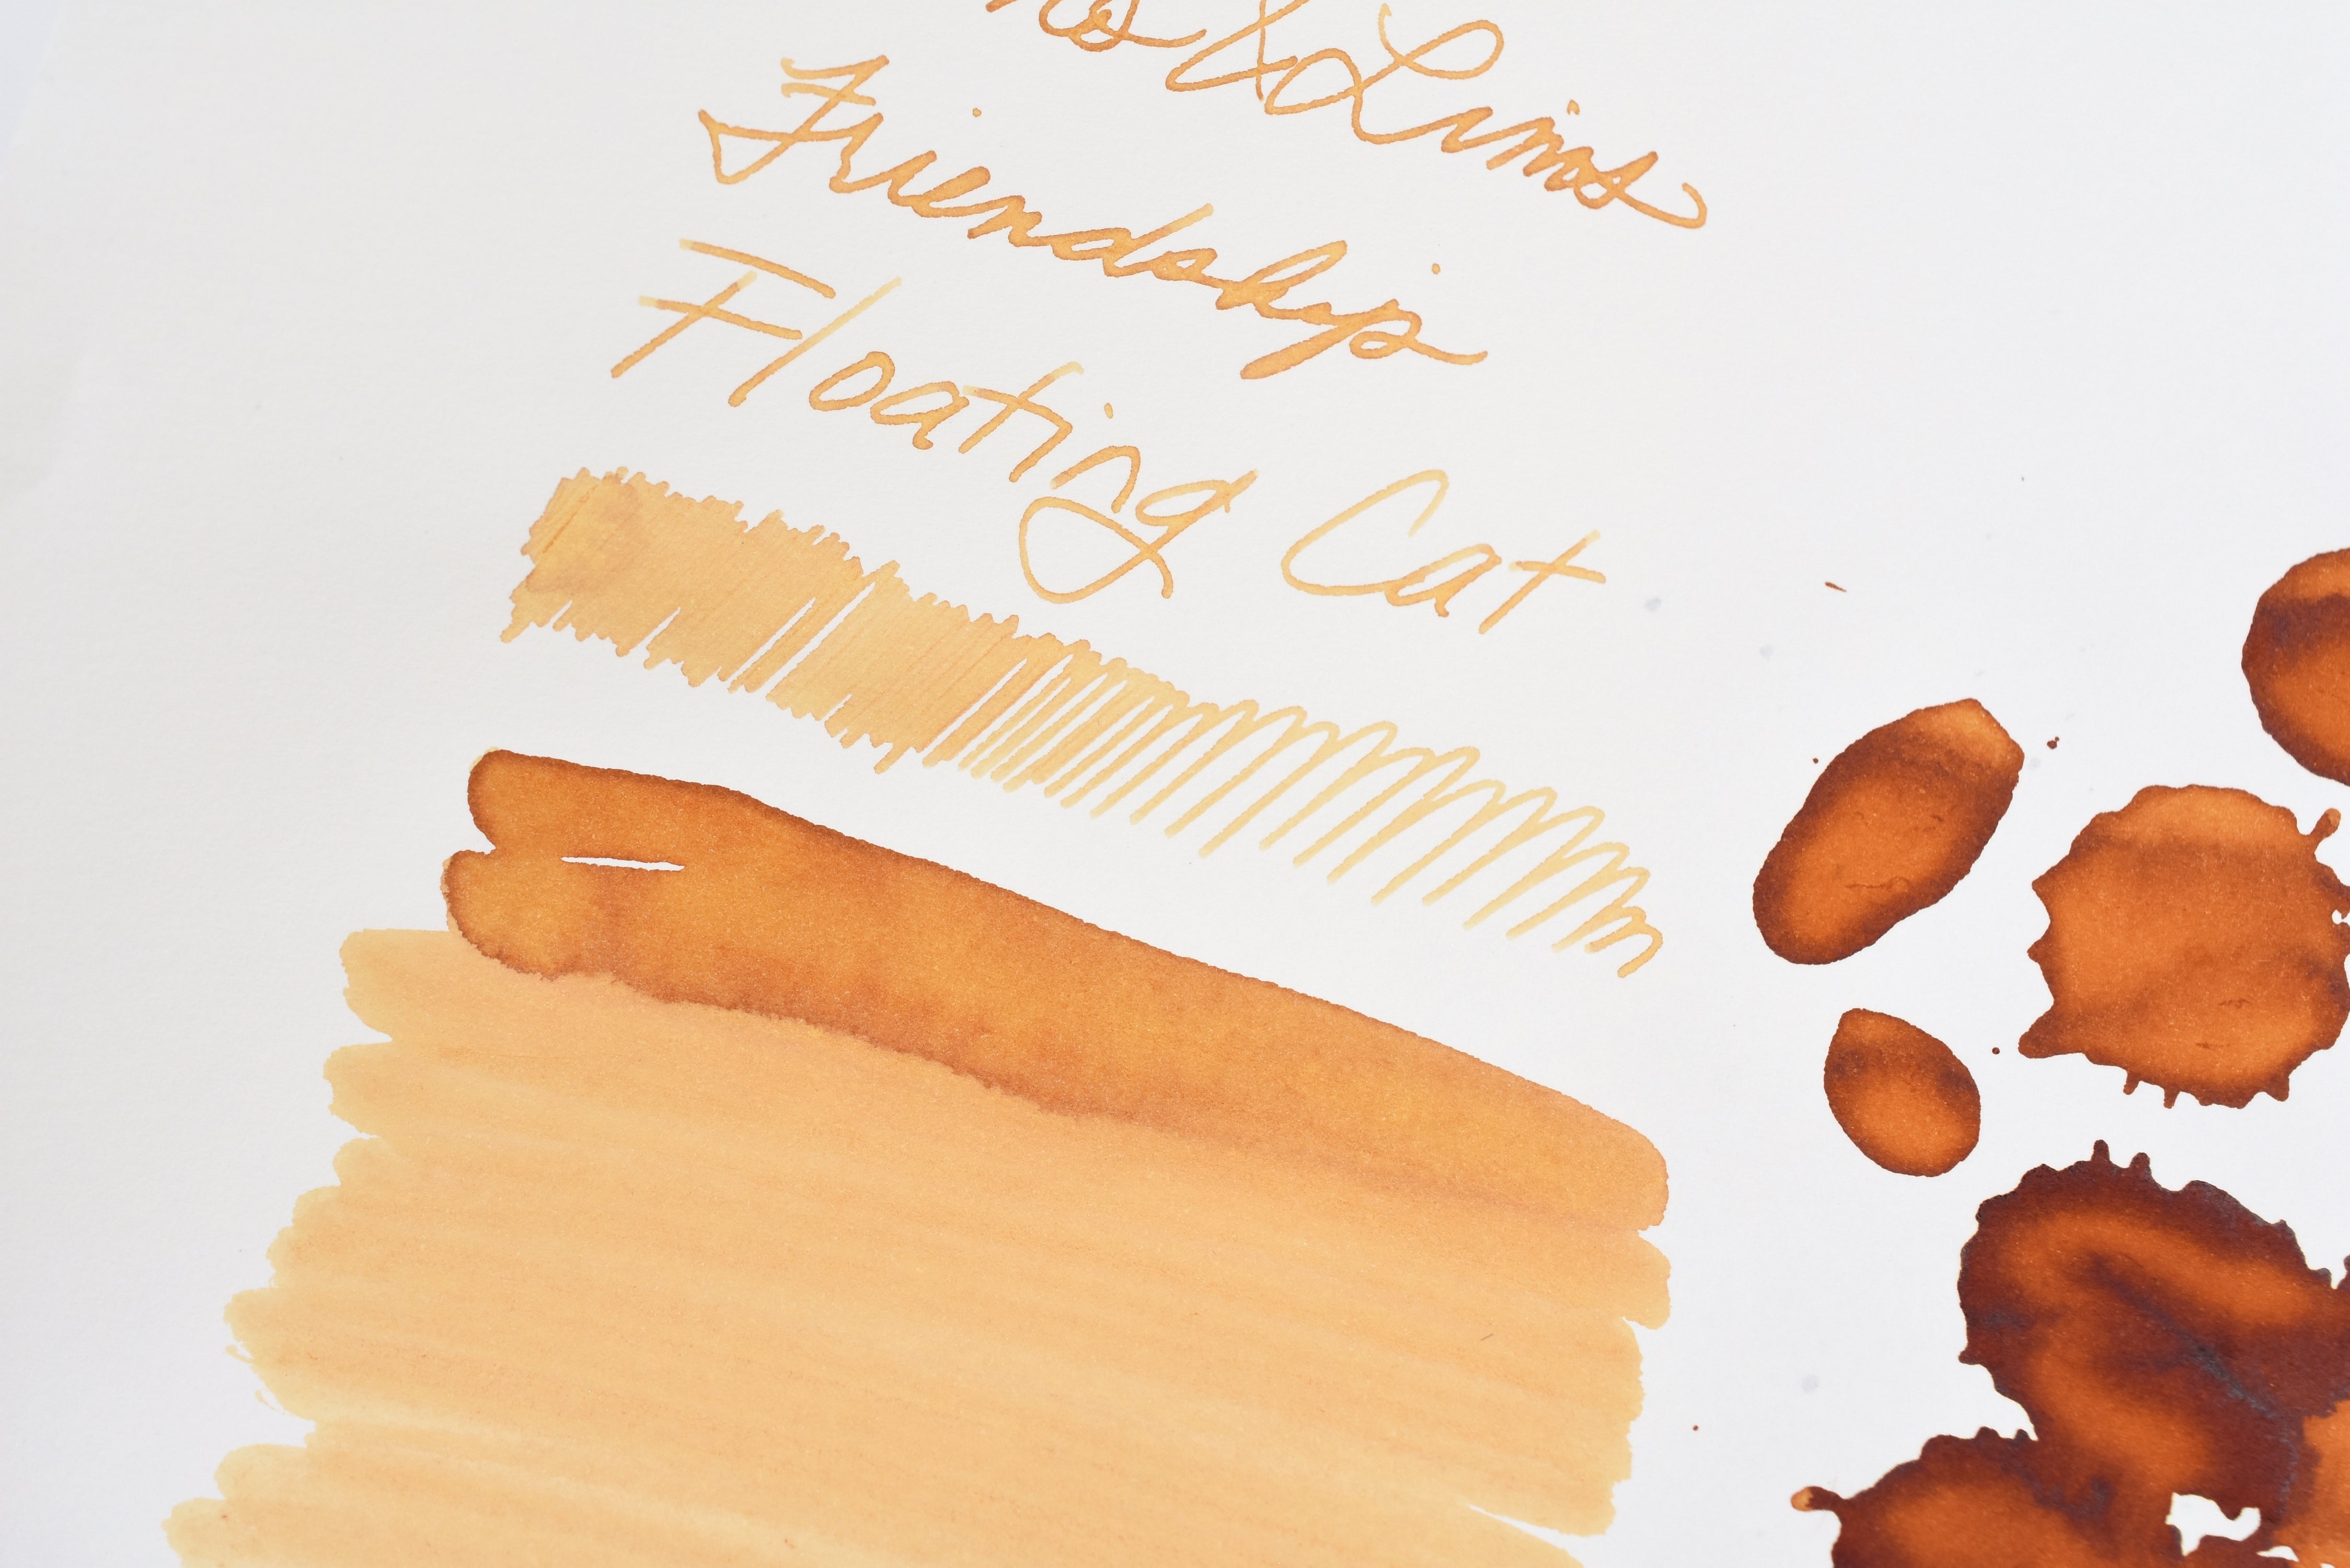 & Lims
Friendship
Floating Cat